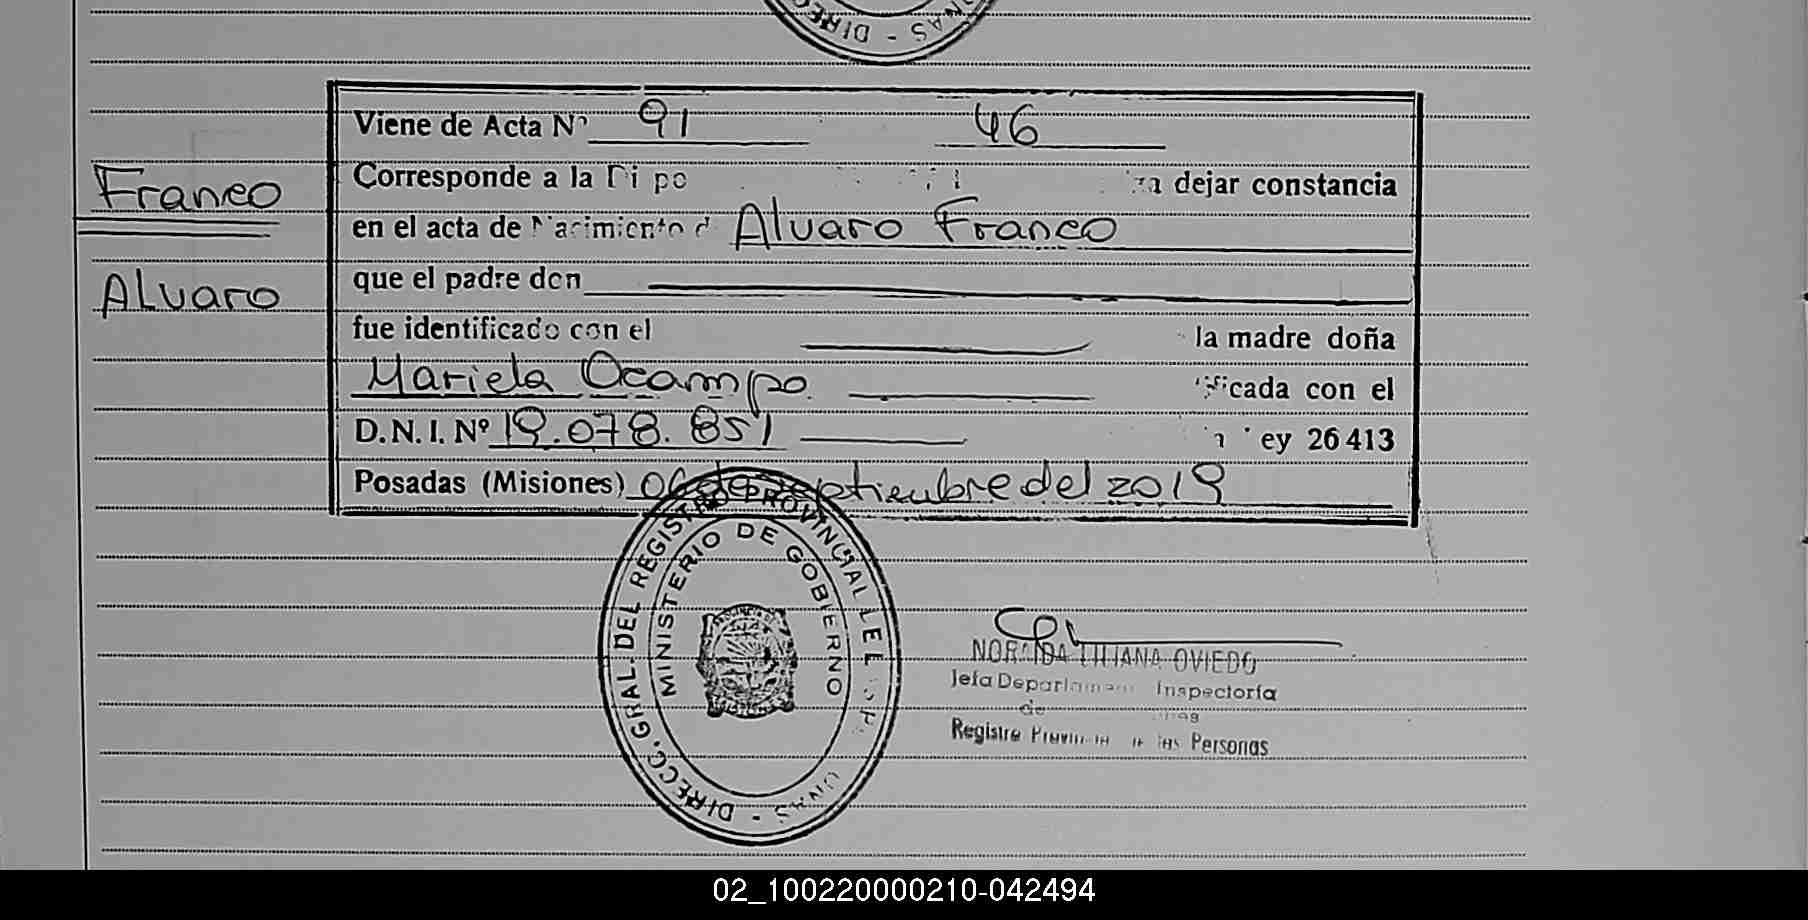 DIREC - NAS
Viene de Acta Nº 91 46
Corresponde a la dejar constancia
Franco
en el acta de Nacimiento d Alvaro Franco
que el padre don
Alvaro
fue identificado con el la madre doña
Mariela Ocampo ificada con el
D.N.I. Nº 19.078.851 ey 26 413
Posadas (Misiones) 06 de septiembre del 2019
DIRECC. GRAL. DEL REGISTRO PROVINCIAL DE L
MINISTERIO DE GOBIERNO
LILIANA OVIEDO
Jefa Departamen Inspectoría
de
Registro Provincial de las Personas
02_100220000210-042494